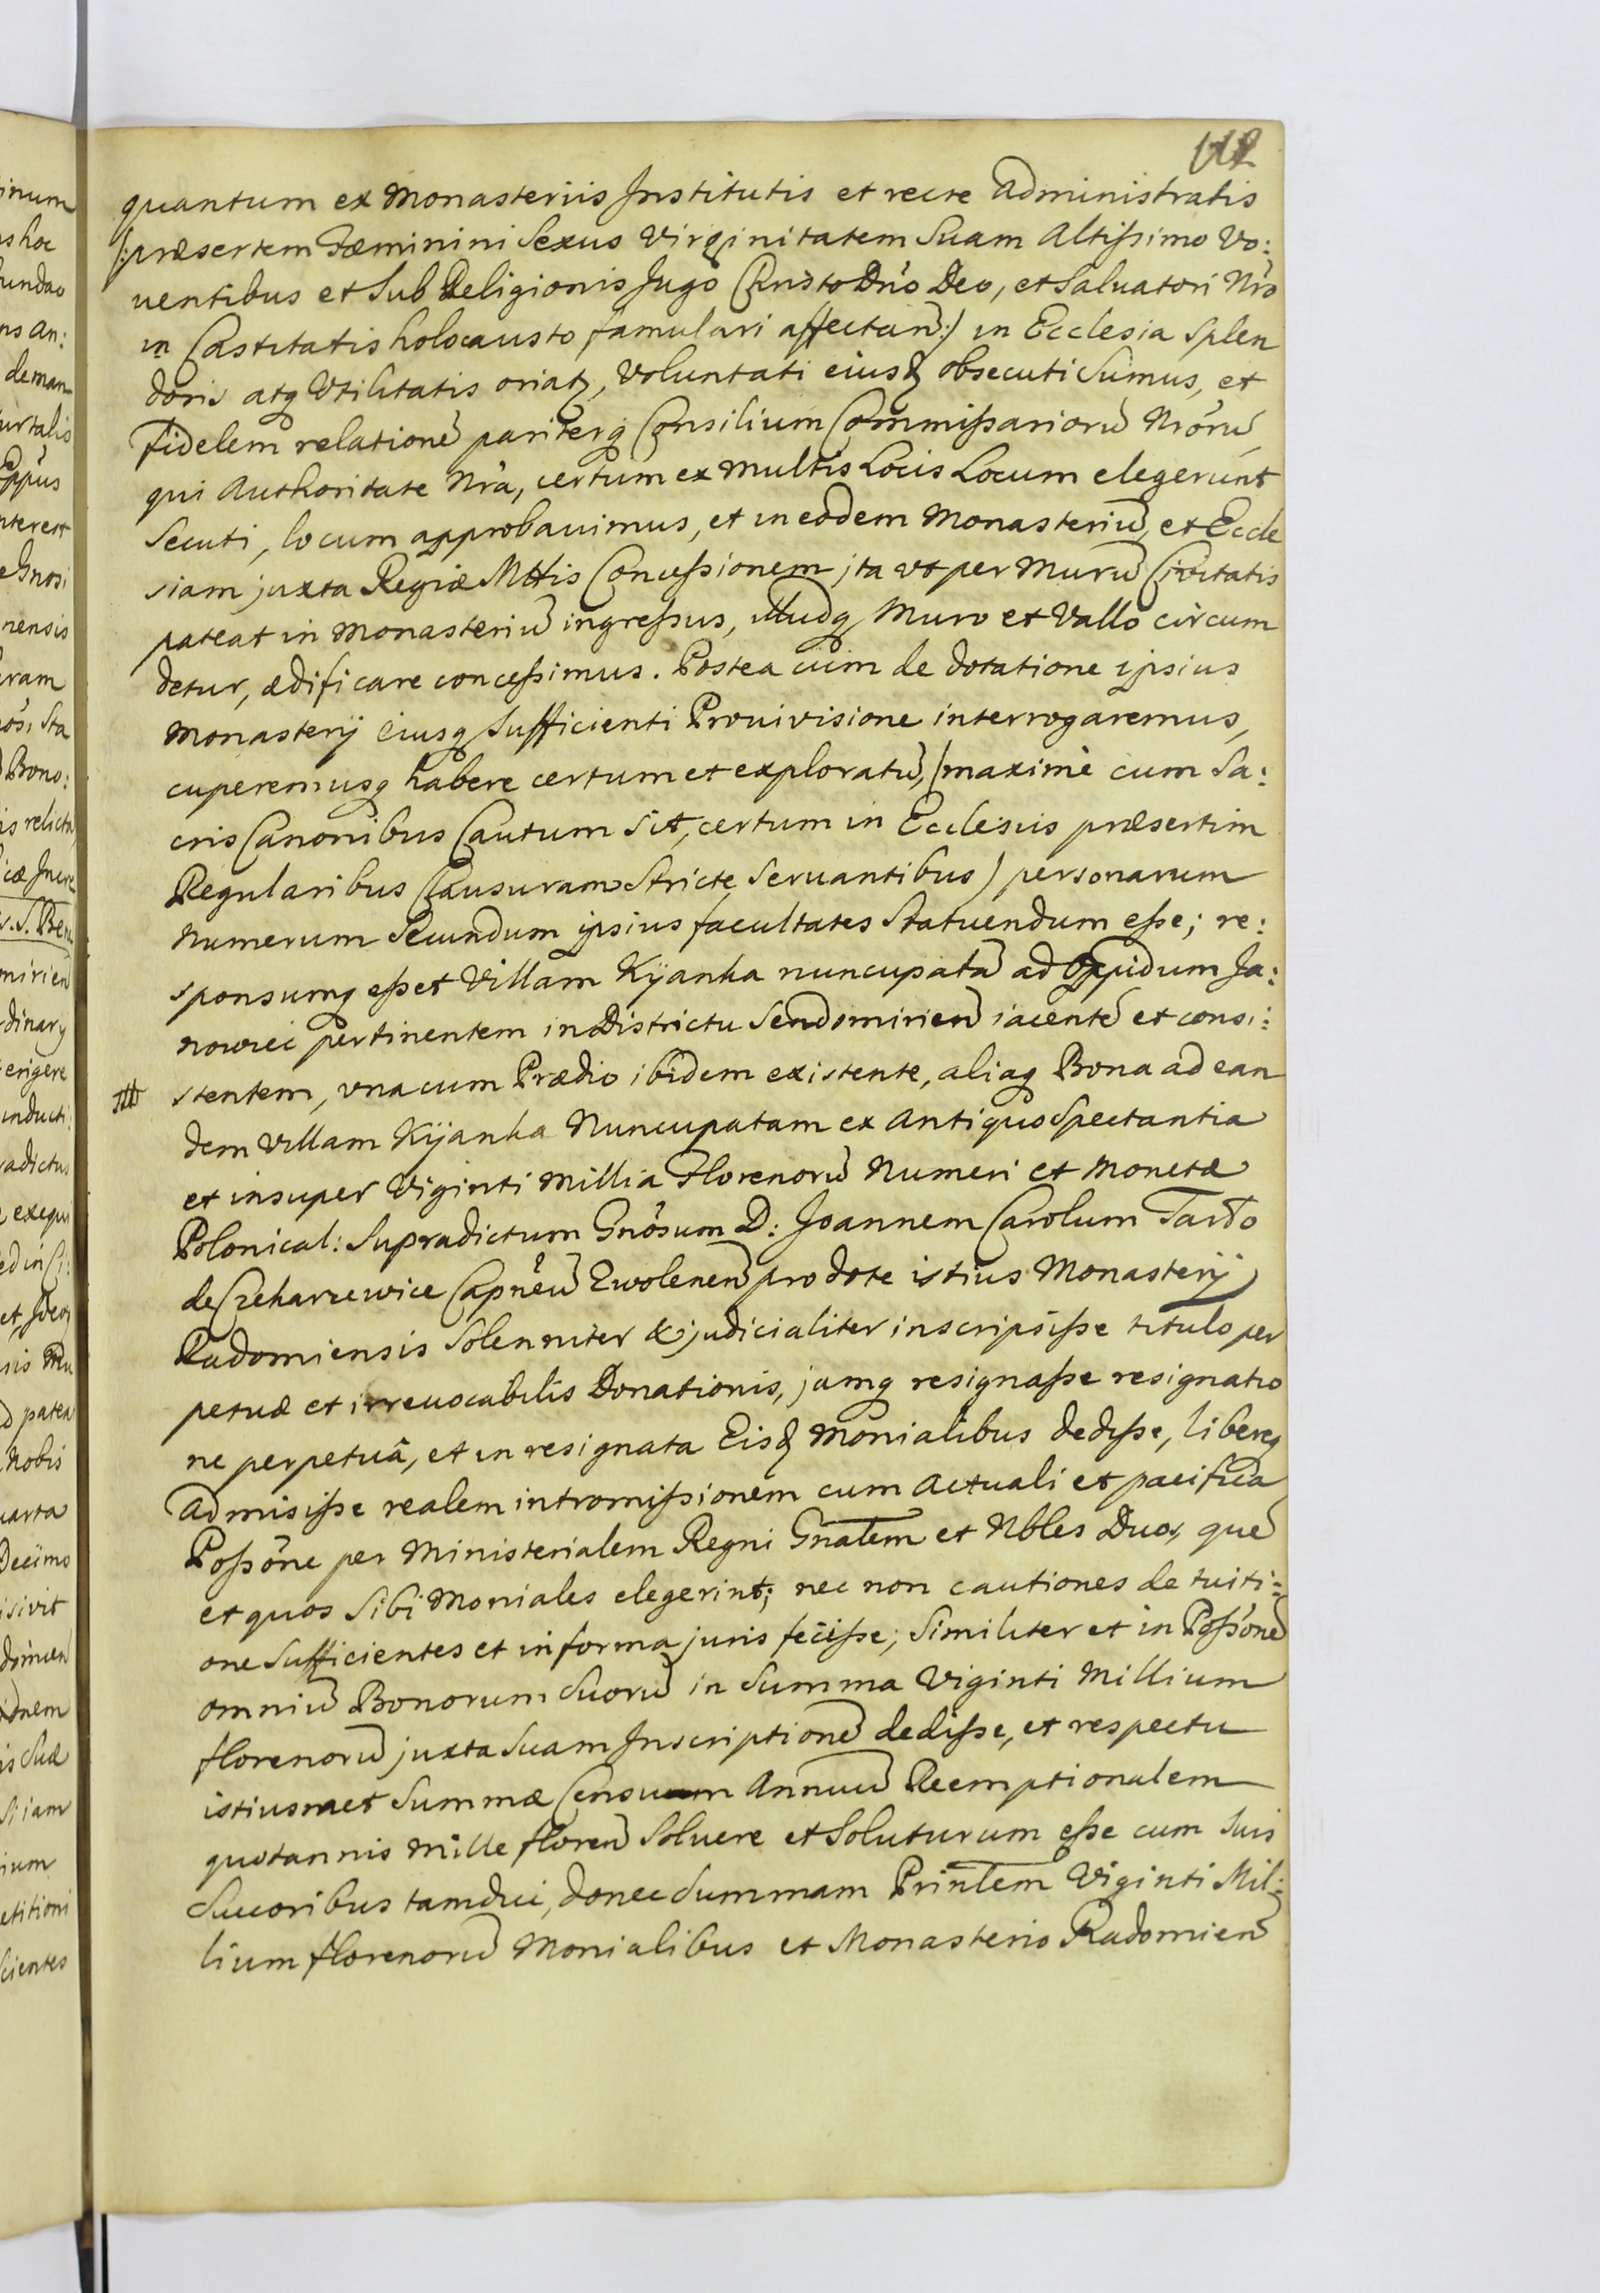 quantum ex Monasteriis Institutis et recte administratis
(:præsertem Fæminini Sexus Virginitatem Suam Altißimo Vo:
uentibus et Sub Religionis Jugo Christo Dnō Deo, et Saluatori Nrō
in Castitatis holocausto famulari affectan̄:) in Ecclesia Splen
doris atq Vtilitatis oriatꝛ, Voluntati eiusd obsecuti Sumus, et
fidelem relationē pariterq Consilium Commißariorū Nrōrū,
qui Authoritate Nrā, certum ex multis Locis Locum elegerunt
Secuti, locum approbauimus, et in eodem Monasteriū, et Eccle
siam juxta Regiæ Mttis Conceßionem jta vt per Murū Civitatis
pateat in Monasteriū ingreßus, illudq Muro et Vallo circum
detur, ædificare conceßimus. Postea cùm de dotatione ipsius
Monasterij eiusq Sufficienti Prouivisione interrogaremus,
cuperemusq habere certum et exploratū, (maximè cum Sa:
cris Canonibus Cautum Sit, certum in Ecclesiis præsertim
Regularibus Clausuram Stricte Seruantibus) personarum
Numerum Secundum ipsius facultates Statuendum eße; re:
sponsumq eßet Villam Kijanka nuncupatā ad Oppidum Ja:
nowiec pertinentem in Districtu Sendomirien̄ iacentē et consi:
stentem, vna cum Prædio ibidem existente, aliaq Bona ad ean
dem Villam Kijanka Nuncupatam ex Antiquo Spectantia
et insuper Viginti Millia Florenorū Numeri et Monetæ
Polonical: Supradictum Gnōsum D: Joannem Carolum Tarło
de Czekarzewice Capnēū Zwolenen̄ pro dote istius Monasterij
Radomiensis Solenniter & judicialiter inscripsiße titulo per
petuæ et irreuocabilis Donationis, jamq resignaße resignatio
ne perpetuâ, et in resignata Eisd Monialibus dediße, libereq
admisiße realem intromißionem cum Actuali et pacifica
Poßōne per Ministerialem Regni Gnālem et Nbles Duos, quē
et quos Sibi Moniales elegerint; nec non cautiones de tuiti:
one Sufficientes et in forma juris feciße; Similiter et in Poßōnē
omniū Bonorum Suorū in Summa Viginti Millium
florenorū juxta Suam Inscriptionē dediße, et respectu
istiusmet Summæ Censuum Annuū Reemptionalem
quotannis Mille floren̄ Soluere et Soluturum eße cum Suis
Succoribus tamdiu, donec Summam Prinlēm Viginti Mil:
lium florenorū Monialibus et Monasterio Radomien̄